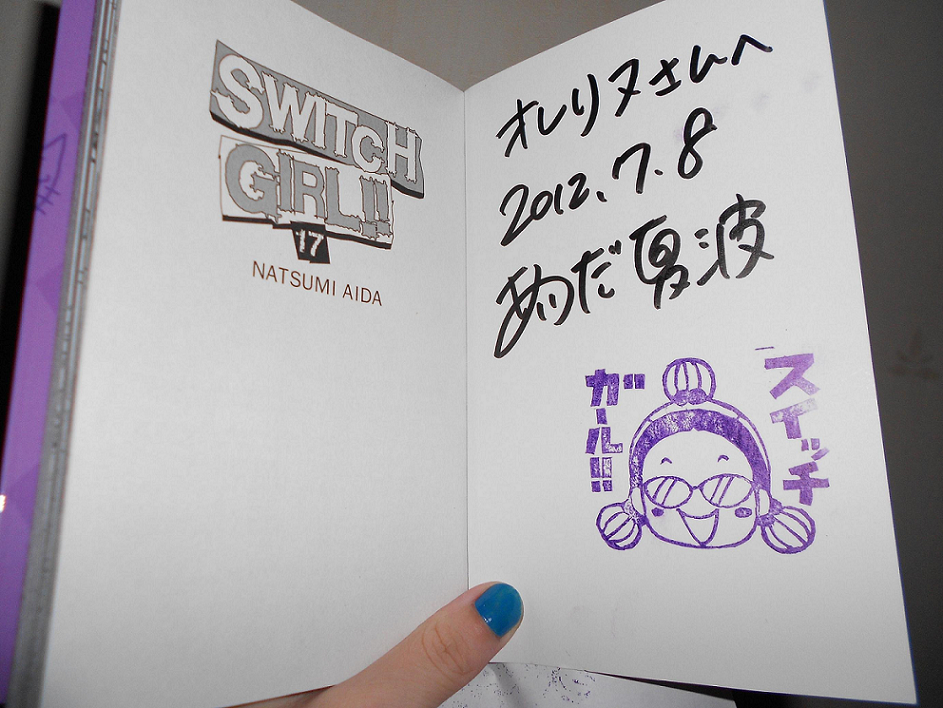 SWITCH
GIRL!!
17
NATSUMI AIDA
オレリヌさんへ
2012.7.8
あいだ夏波
スイッチ
ガール!!!